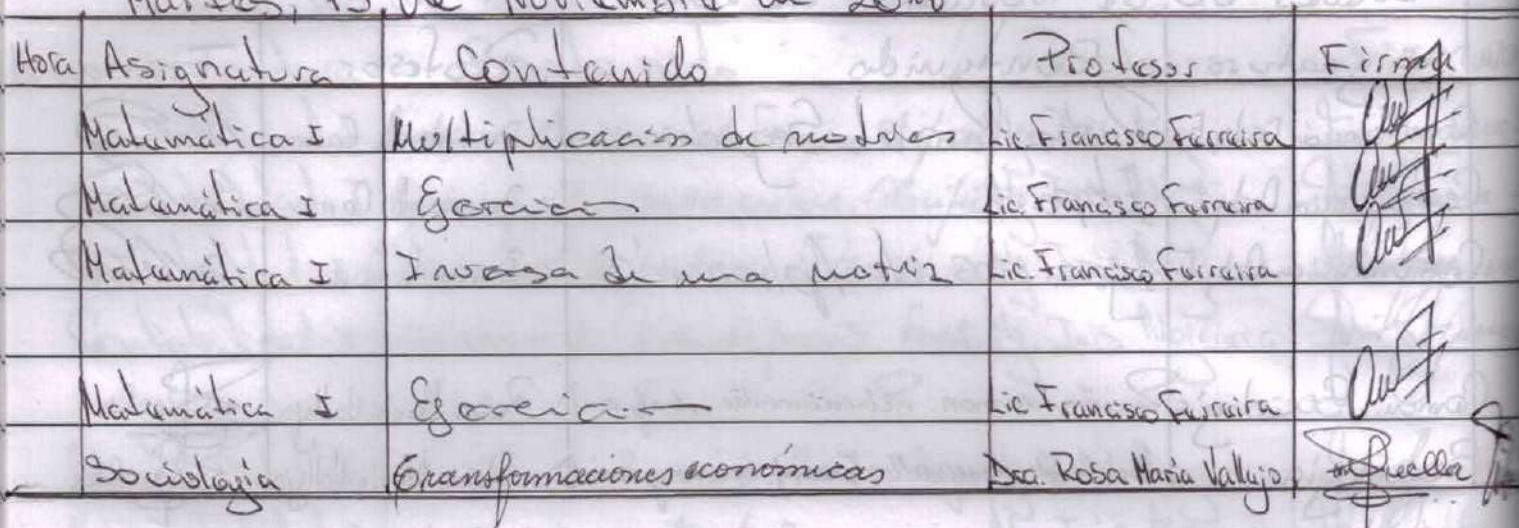 Martes, 15 de Noviembre de
Hora Asignatura Contenido Profesor Firma
Matemática I Multiplicación de Lic. Francisco Ferreira
Matemática I Ejercicio Lic. Francisco Ferreira
Matemática I Inversa de una matriz Lic. Francisco Ferreira
Matemática I Ejercicio Lic. Francisco Ferreira
Sociología Transformaciones económicas Dra. Rosa María Vallejo